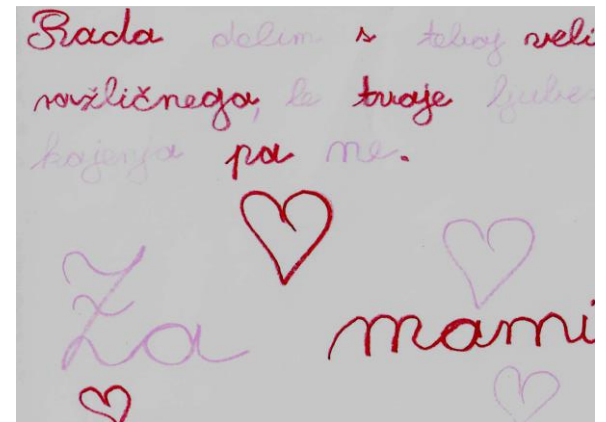 Rada delim s teboj veli
različnega, le tvoje ljubes
kajenja pa ne.
Za mami